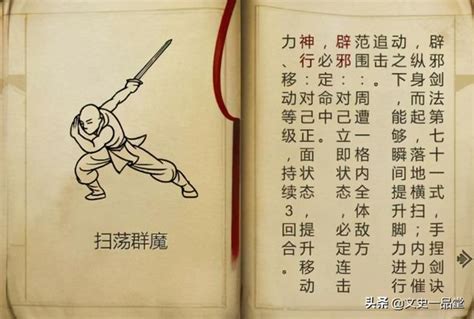 扫荡群魔
辟邪剑法第七十一式，手捏剑诀
纵身而起，落地横扫；内力催
动，之下，能够瞬间提升脚力进行
追击。
范围：周遭一格内全体敌方
辟邪：对己立即状态，必定连击
，必定命中。
神行：对己正面状态，提升移动
力、移动等级，持续3回合。
头条 @文史一品堂